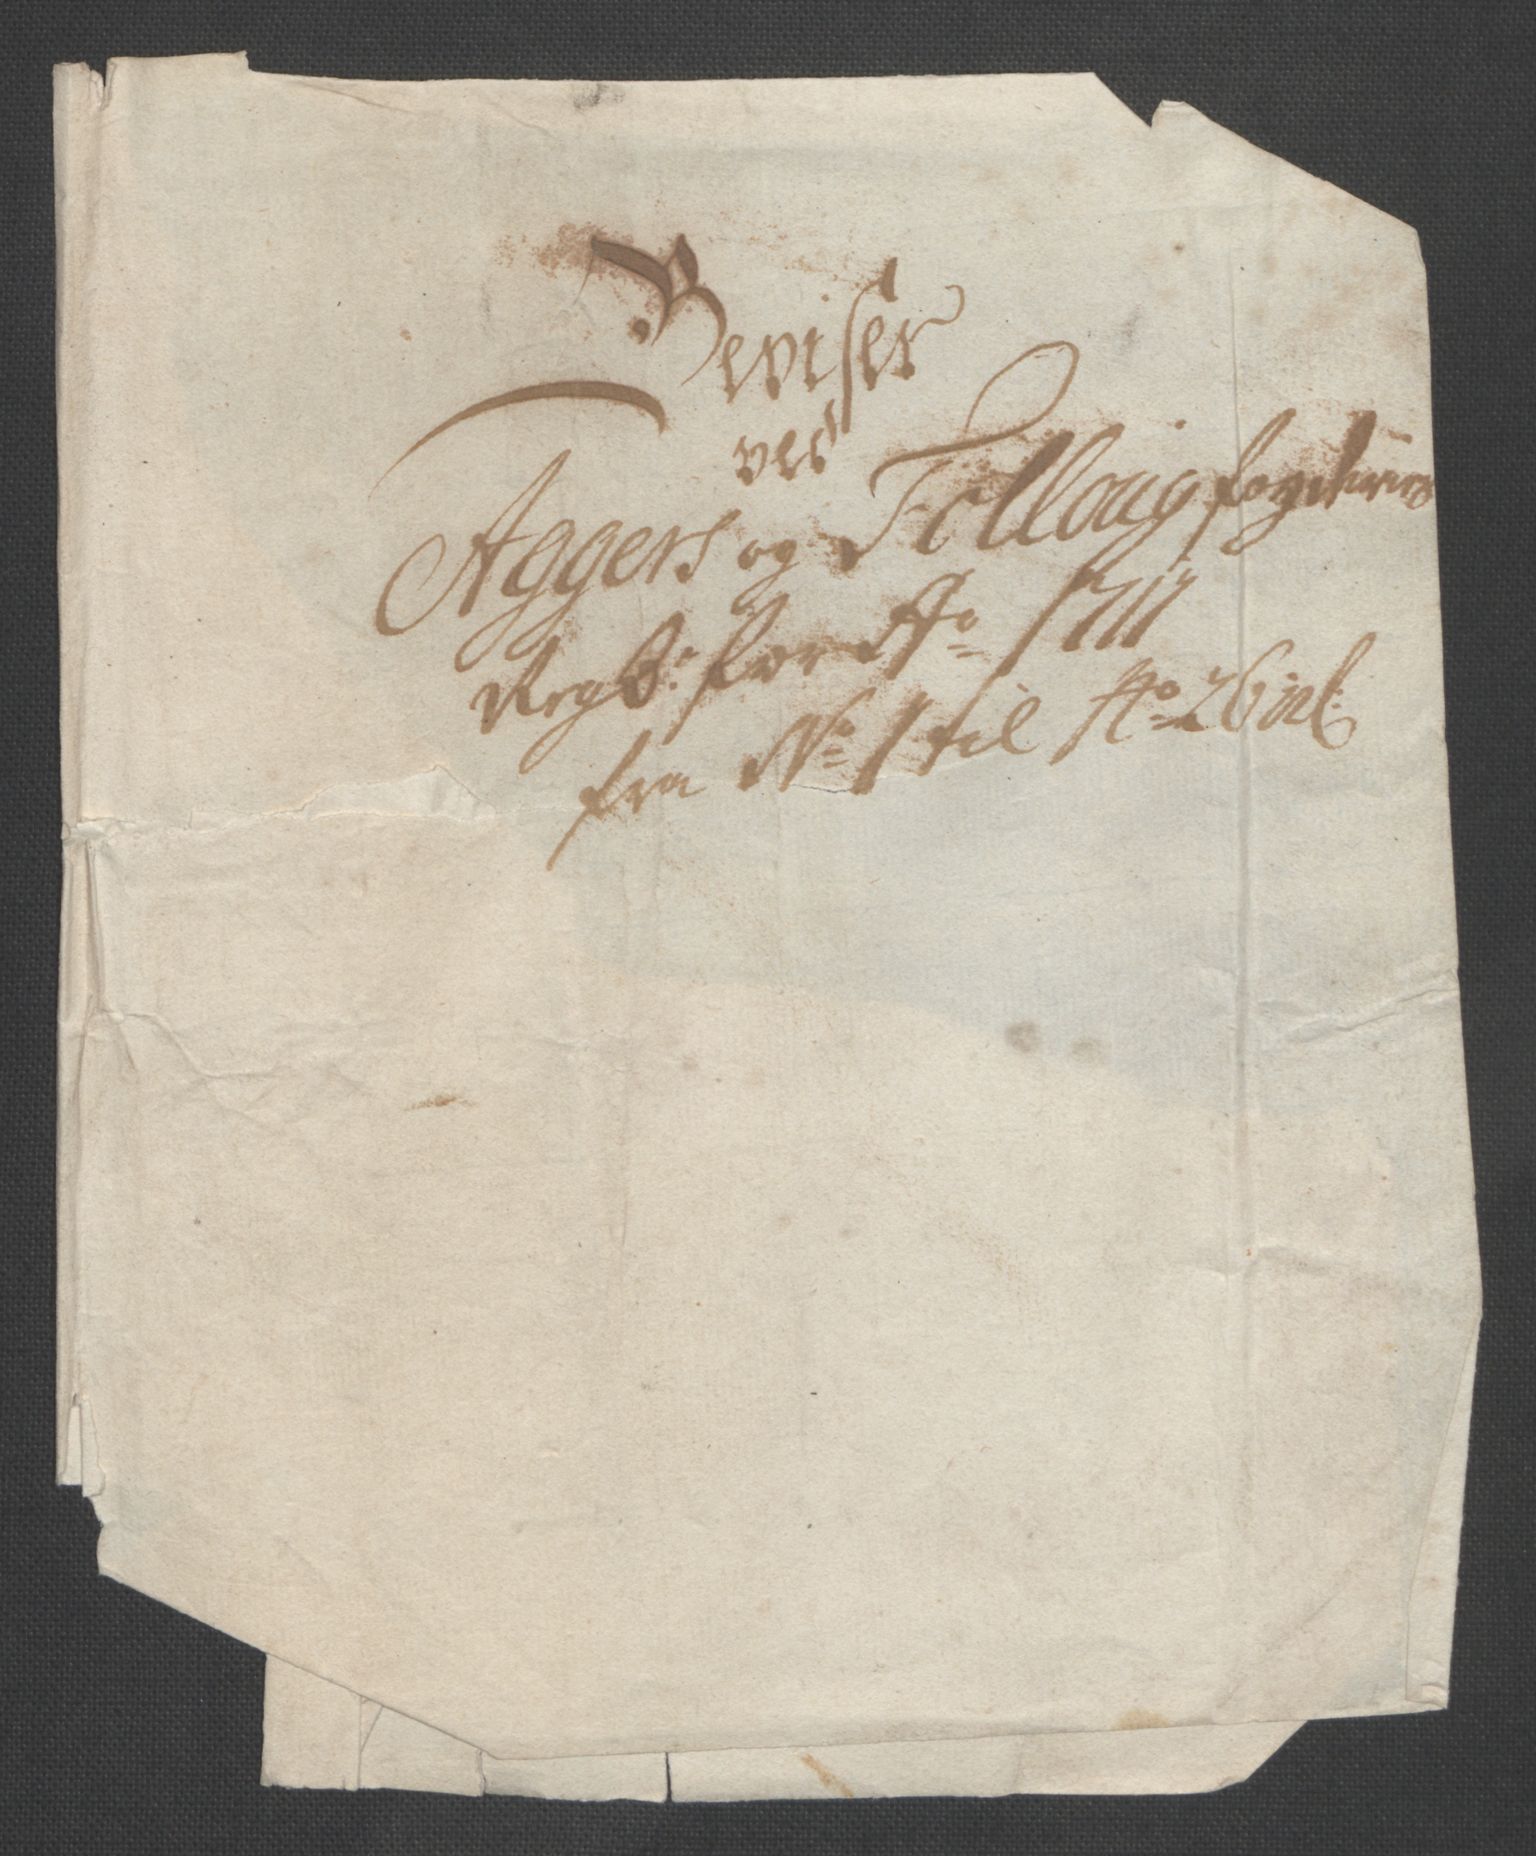 Beviser
ved
Aggers og Folloug fogderiers
Regsk: for Ao 1711
fra No 1 til No 26 incl: